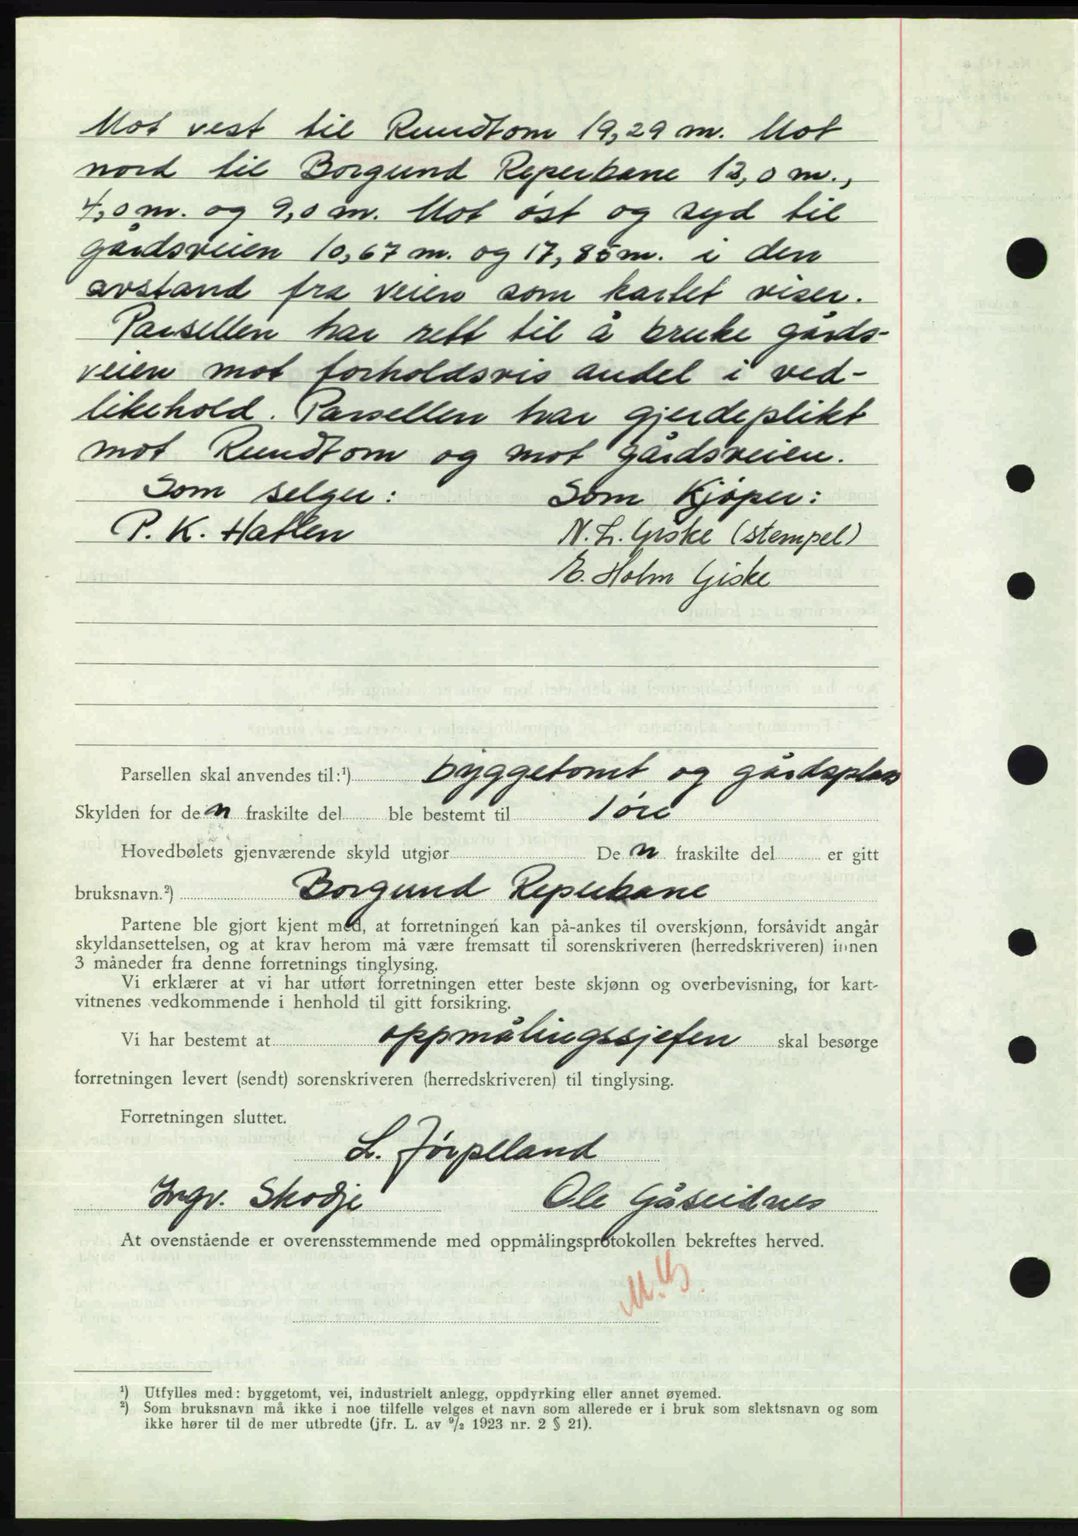 Mot vest til Rundtom 19,29 m. Mot
nord til Borgund Reperbane 13,0 m.,
4,0 m. og 9,0 m. Mot øst og syd til
gårdsveien 10,67 m. og 17,85 m. i den
avstand fra veien som kartet viser.
Parsellen har rett til å bruke gårds-
veien mot forholdsvis andel i ved-
likehold. Parsellen har gjerdeplikt
mot Rundtom og mot gårdsveien.
Som selger: Som Kjøper:
P. K. Hatlen N. L. Giske (stempel)
E. Holm Giske
Parsellen skal anvendes til:¹) byggetomt og gårdsplass
Skylden for den fraskilte del ble bestemt til 1 øre
Hovedbølets gjenværende skyld utgjør Den fraskilte del er gitt
bruksnavn.²) Borgund Reperbane
Partene ble gjort kjent med, at forretningen kan på-ankes til overskjønn, forsåvidt angår
skyldansettelsen, og at krav herom må være fremsatt til sorenskriveren (herredskriveren) innen
3 måneder fra denne forretnings tinglysing.
Vi erklærer at vi har utført forretningen etter beste skjønn og overbevisning, for kart-
vitnenes vedkommende i henhold til gitt forsikring.
Vi har bestemt at oppmålingssjefen skal besørge
forretningen levert (sendt) sorenskriveren (herredskriveren) til tinglysing.
Forretningen sluttet.
L. Jørpeland
Ingv. Skodje Ole Gåseidnes
At ovenstående er overensstemmende med oppmålingsprotokollen bekreftes herved.
¹) Utfylles med: byggetomt, vei, industrielt anlegg, oppdyrking eller annet øyemed.
²) Som bruksnavn må ikke i noe tilfelle velges et navn som allerede er i bruk som slektsnavn og som
ikke hører til de mer utbredte (jfr. L. av ⁹/₂ 1923 nr. 2 § 21).